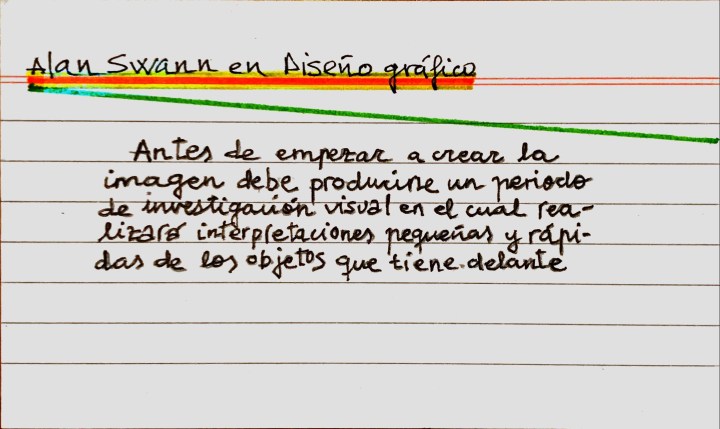 Alan Swann en Diseño gráfico
Antes de empezar a crear la
imagen debe producirse un periodo
de investigación visual en el cual rea-
lizará interpretaciones pequeñas y rápi-
das de los objetos que tiene delante